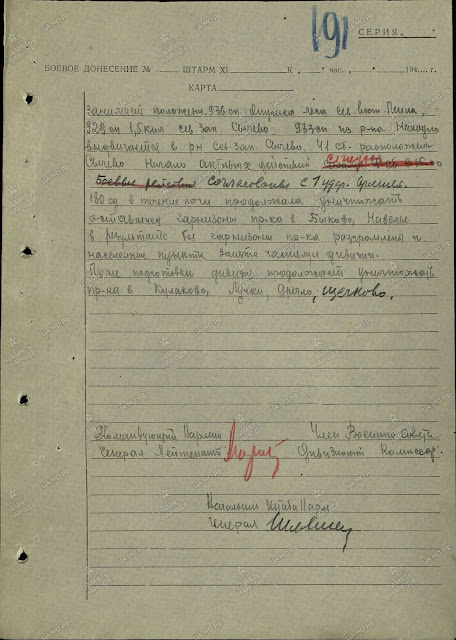 191
СЕРИЯ.
БОЕВОЕ ДОНЕСЕНИЕ № ШТАРМ XI К час. 194 г.
КАРТА
занимает положение 936 сп опушка леса сев. вост.
929 сп 1,5 км сев. зап. Сычево. 933 сп из р-на
выдвигается в р-н сев. зап. Сычево, 41 сб- расположена
Сычево. Начало активных действий сегодня
Боевые согласованы с 1 удар. Армией.
180 сд в течение ночи продолжала уничтожать
оставшиеся гарнизоны пр-ка в Быково, Навелье
в результате боя гарнизоны пр-ка разгромлены и
населенные пункты заняты частями дивизии.
После подготовки дивизия продолжает уничтожать
пр-ка в Кулаково, Лучко, Дрегло, Щечково.
Командующий Парм Член Военного Совета
Генерал Лейтенант Дивизионный Комиссар
Начальник Штаба Парм
Генерал